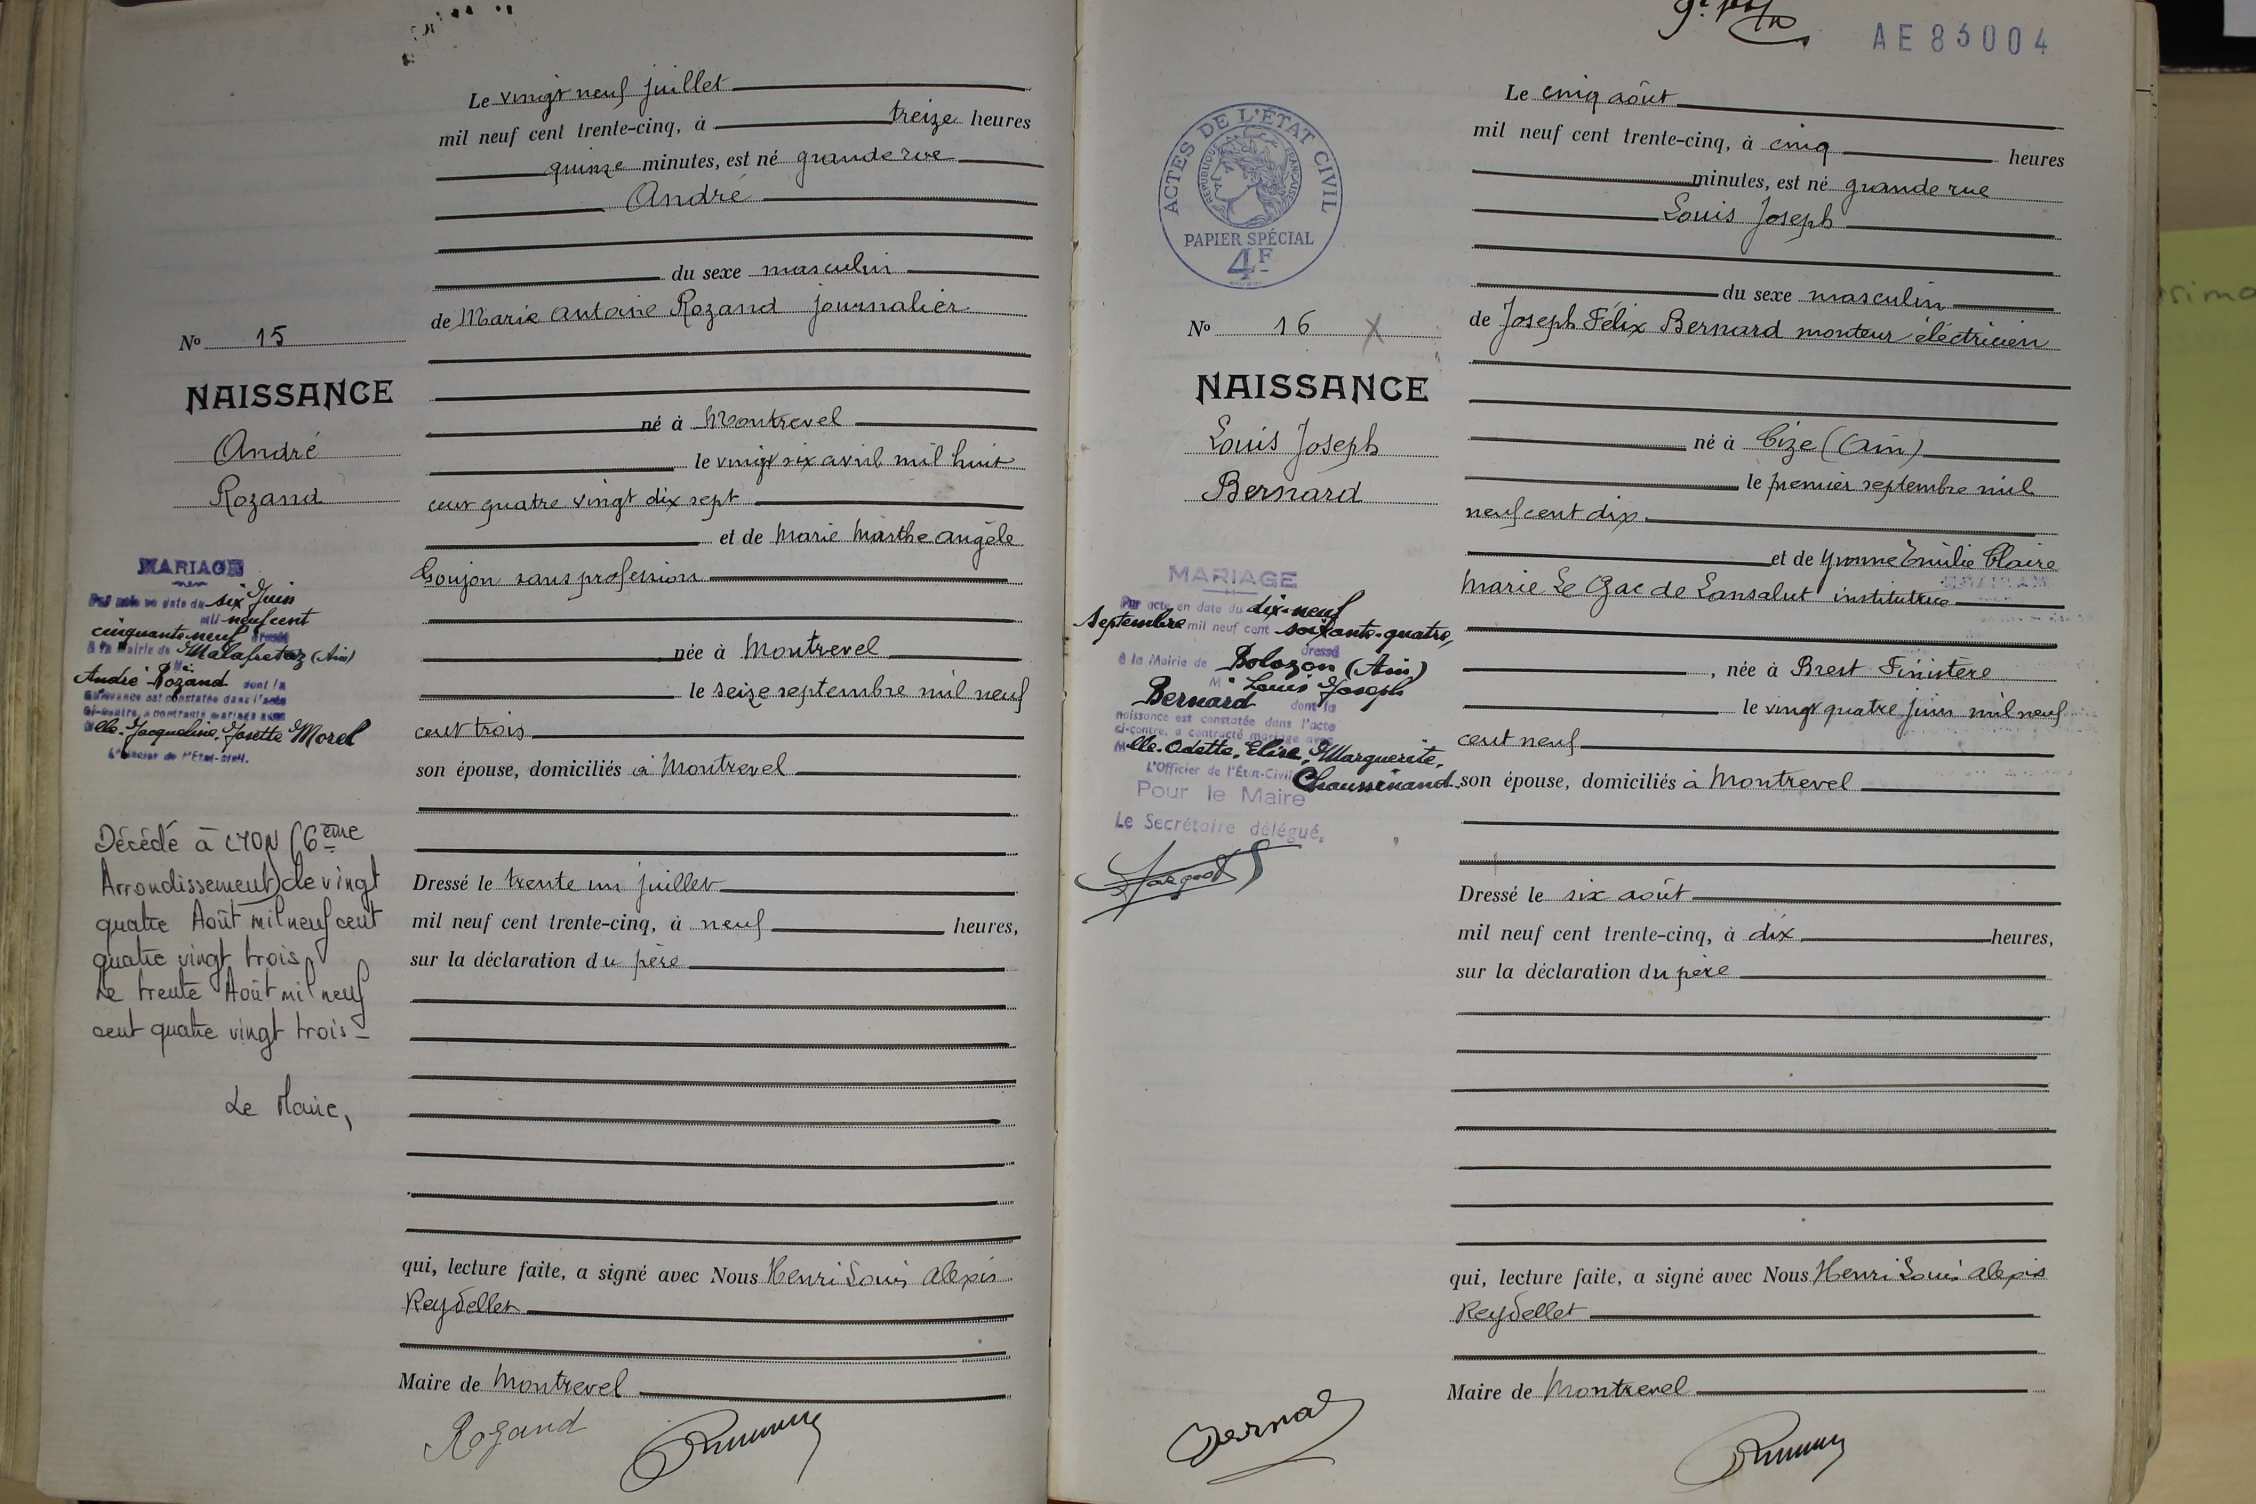 Le vingt neuf juillet
mil neuf cent trente-cinq, à treize heures
quinze minutes, est né grande rue
André
du sexe masculin
de Marie Antoine Rozand journalier
né à Montrevel
le vingt six avril mil huit
cent quatre vingt dix sept
et de Marie Marthe Angèle
Goujon sans profession
née à Montrevel
le seize septembre mil neuf
cent trois
son épouse, domiciliés à Montrevel
Dressé le trente un juillet
mil neuf cent trente-cinq, à neuf heures,
sur la déclaration du père
qui, lecture faite, a signé avec Nous Henri Louis Alexis
Reydellet
Maire de Montrevel
Rozand
No 15
NAISSANCE
André
Rozand
MARIAGE
Par acte en date du six Juin
mil neuf cent
cinquante-neuf dressé
à la Mairie de Malafretaz (Ain)
Mr
André Rozand dont la
naissance est constatée dans l'acte
ci-contre, a contracté mariage avec
Melle Jacqueline, Josette Morel
L'Officier de l'État-Civil.
Décédé à LYON (6ème
Arrondissement) le vingt
quatre Août mil neuf cent
quatre vingt trois
Le trente Août mil neuf
cent quatre vingt trois -
Le Maire,
AE83004
ACTES DE L'ÉTAT CIVIL
RÉPUBLIQUE FRANÇAISE
PAPIER SPÉCIAL
4F
Le cinq août
mil neuf cent trente-cinq, à cinq heures
minutes, est né grande rue
Louis Joseph
du sexe masculin
de Joseph Félix Bernard monteur électricien
né à Cize (Ain)
le premier septembre mil
neuf cent dix
et de Yvonne Emilie Claire
Marie Le Gac de Lansalut institutrice
, née à Brest Finistère
le vingt quatre juin mil neuf
cent neuf
son épouse, domiciliés à Montrevel
Dressé le six août
mil neuf cent trente-cinq, à dix heures,
sur la déclaration du père
qui, lecture faite, a signé avec Nous Henri Louis Alexis
Reydellet
Maire de Montrevel
No 16 X
NAISSANCE
Louis Joseph
Bernard
MARIAGE
Par acte en date du dix-neuf
Septembre mil neuf cent soixante-quatre,
dressé
à la Mairie de Bolozon (Ain)
Mr Louis Joseph
Bernard dont la
naissance est constatée dans l'acte
ci-contre, a contracté mariage avec
Melle Odette, Elise, Marguerite,
L'Officier de l'État-Civil Chaussinand.
Pour le Maire
Le Secrétaire délégué,